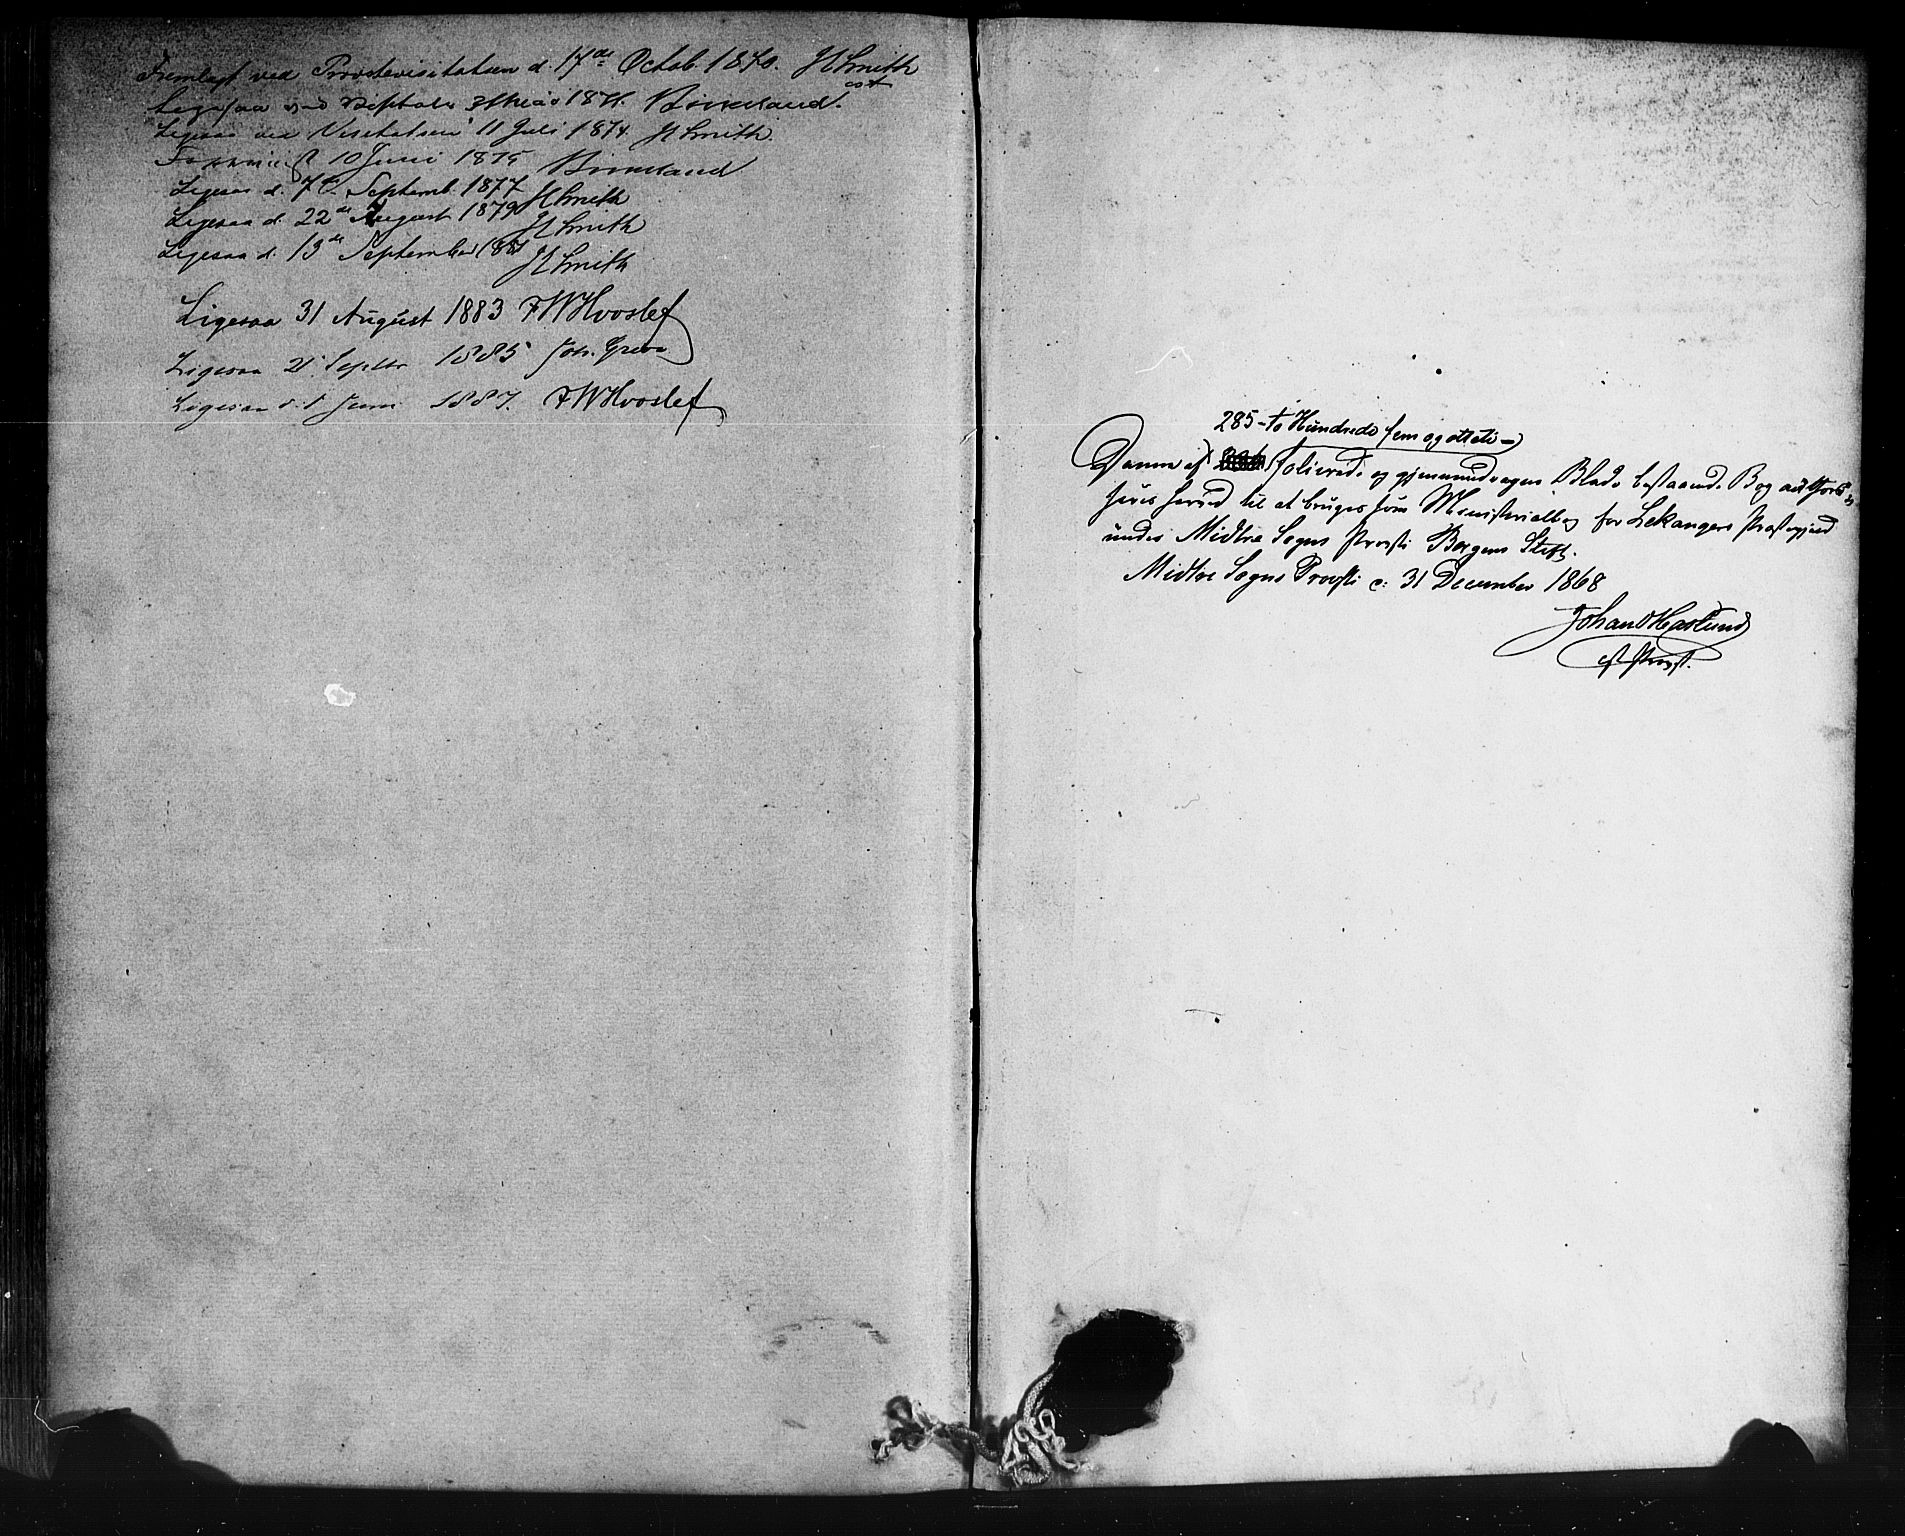 Fremlagt ved Provstevisitatsen d. 17de Octob. 1870. JSmith
cst
Ligesaa ved 1871. Birkeland.
Ligesaa ved Visitatsen 11 Juli 1874. JSmith
10 Juni 1875 Birkeland
Ligesaa d. 7de Septemb. 1877 JSmith
Ligesaa d. 22de August 1879 JSmith
Ligesaa d. 13de September 1881 JSmith
Ligesaa 31 August 1883 FWHvoslef
Ligesaa Septbr 1885 Joh.
Ligesaa d. 1 Juni 1887. FWHvoslef
285 - to Hundrede fem og otteti -
Denne af folierede og gjennemdragne Blade bestaaende Bog
til at bruges som Ministerialbog for Lekangers Præstegjeld
under Midtre Sogns Provsti Bergens Stift.
Midtre Sogns Provsti d: 31 December 1868
Johan Haslund
cst Provst.